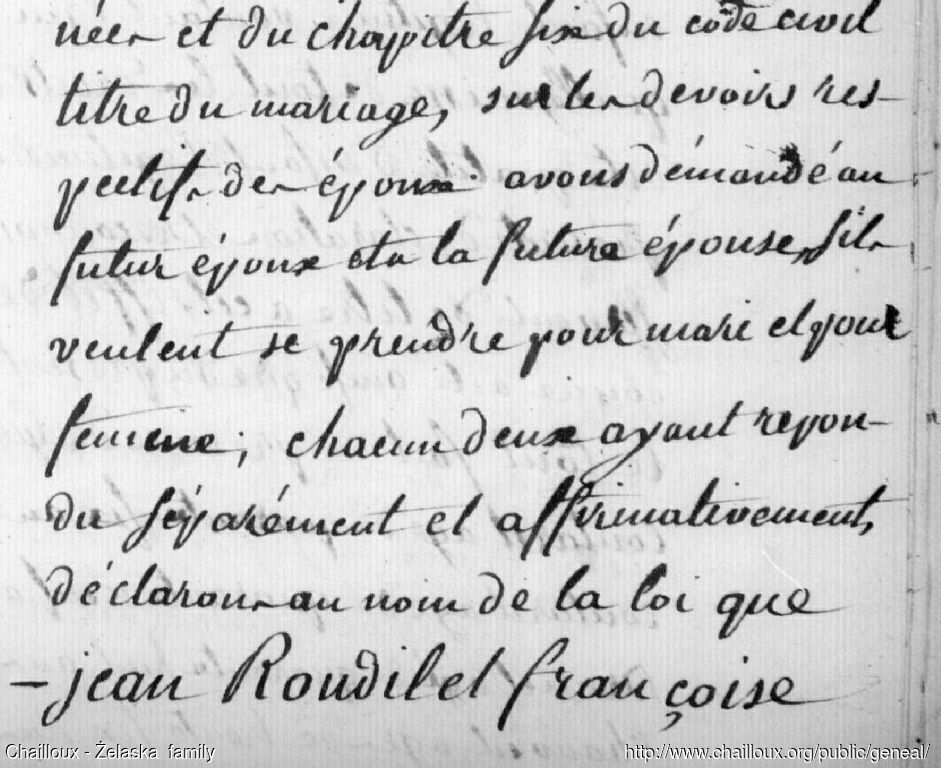 nées et du chapitre six du code civil
titre du mariage, sur les devoirs res-
pectifs des époux avons démandé au
futur époux et a la future épouse, sils
veulent se prendre pour mari et pour
femme; chacun deux ayant repon-
du séparément et affirmativement,
déclarons au nom de la loi que
- jean Roudil et françoise
Chailloux - Želaska family http://www.chailloux.org/public/geneal/